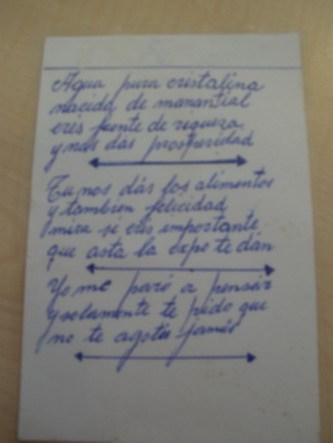 Agua pura cristalina
nacida de manantial
eres fuente de riqueza
y nos das prosperidad
Tu nos dás los alimentos
y tambien felicidad
mira se eres importante
que asta la expo te dán
Yo me paró a pensar
y solamente te pido que
no te agotes jamás